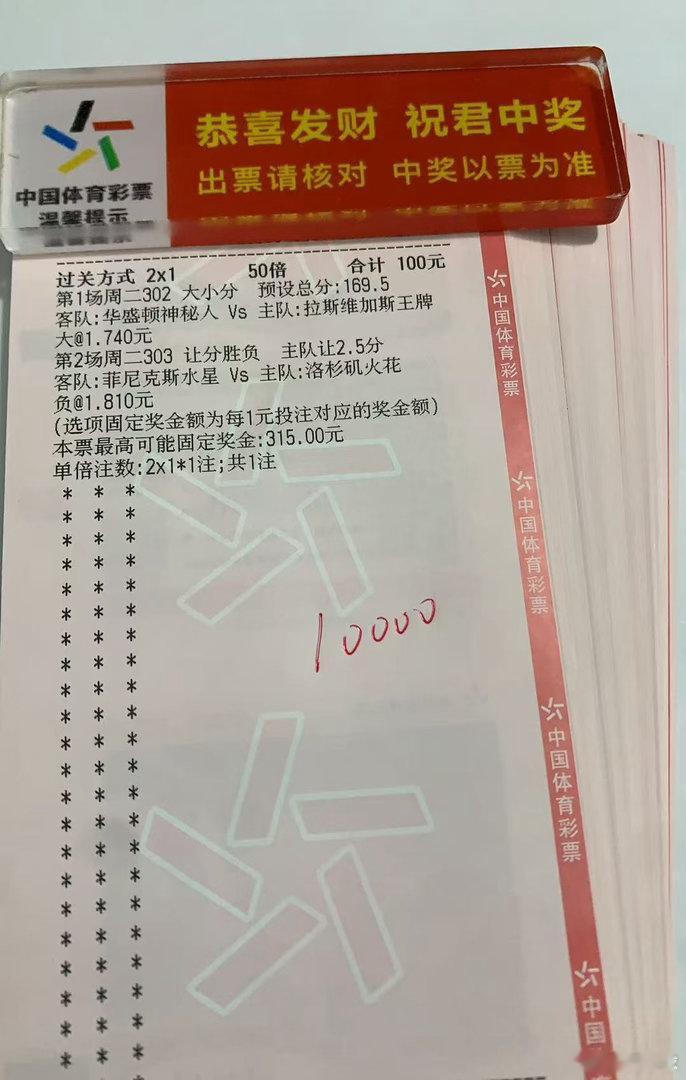 恭喜发财 祝君中奖
出票请核对 中奖以票为准
中国体育彩票
温馨提示
过关方式 2x1 50倍 合计 100元
第1场周二302 大小分 预设总分:169.5
客队:华盛顿神秘人 Vs 主队:拉斯维加斯王牌
大@1.740元
第2场周二303 让分胜负 主队让2.5分
客队:菲尼克斯水星 Vs 主队:洛杉矶火花
负@1.810元
(选项固定奖金额为每1元投注对应的奖金额)
本票最高可能固定奖金:315.00元
单倍注数:2x1*1注;共1注
10000
中国体育彩票
中国体育彩票
中国体育彩票
中国